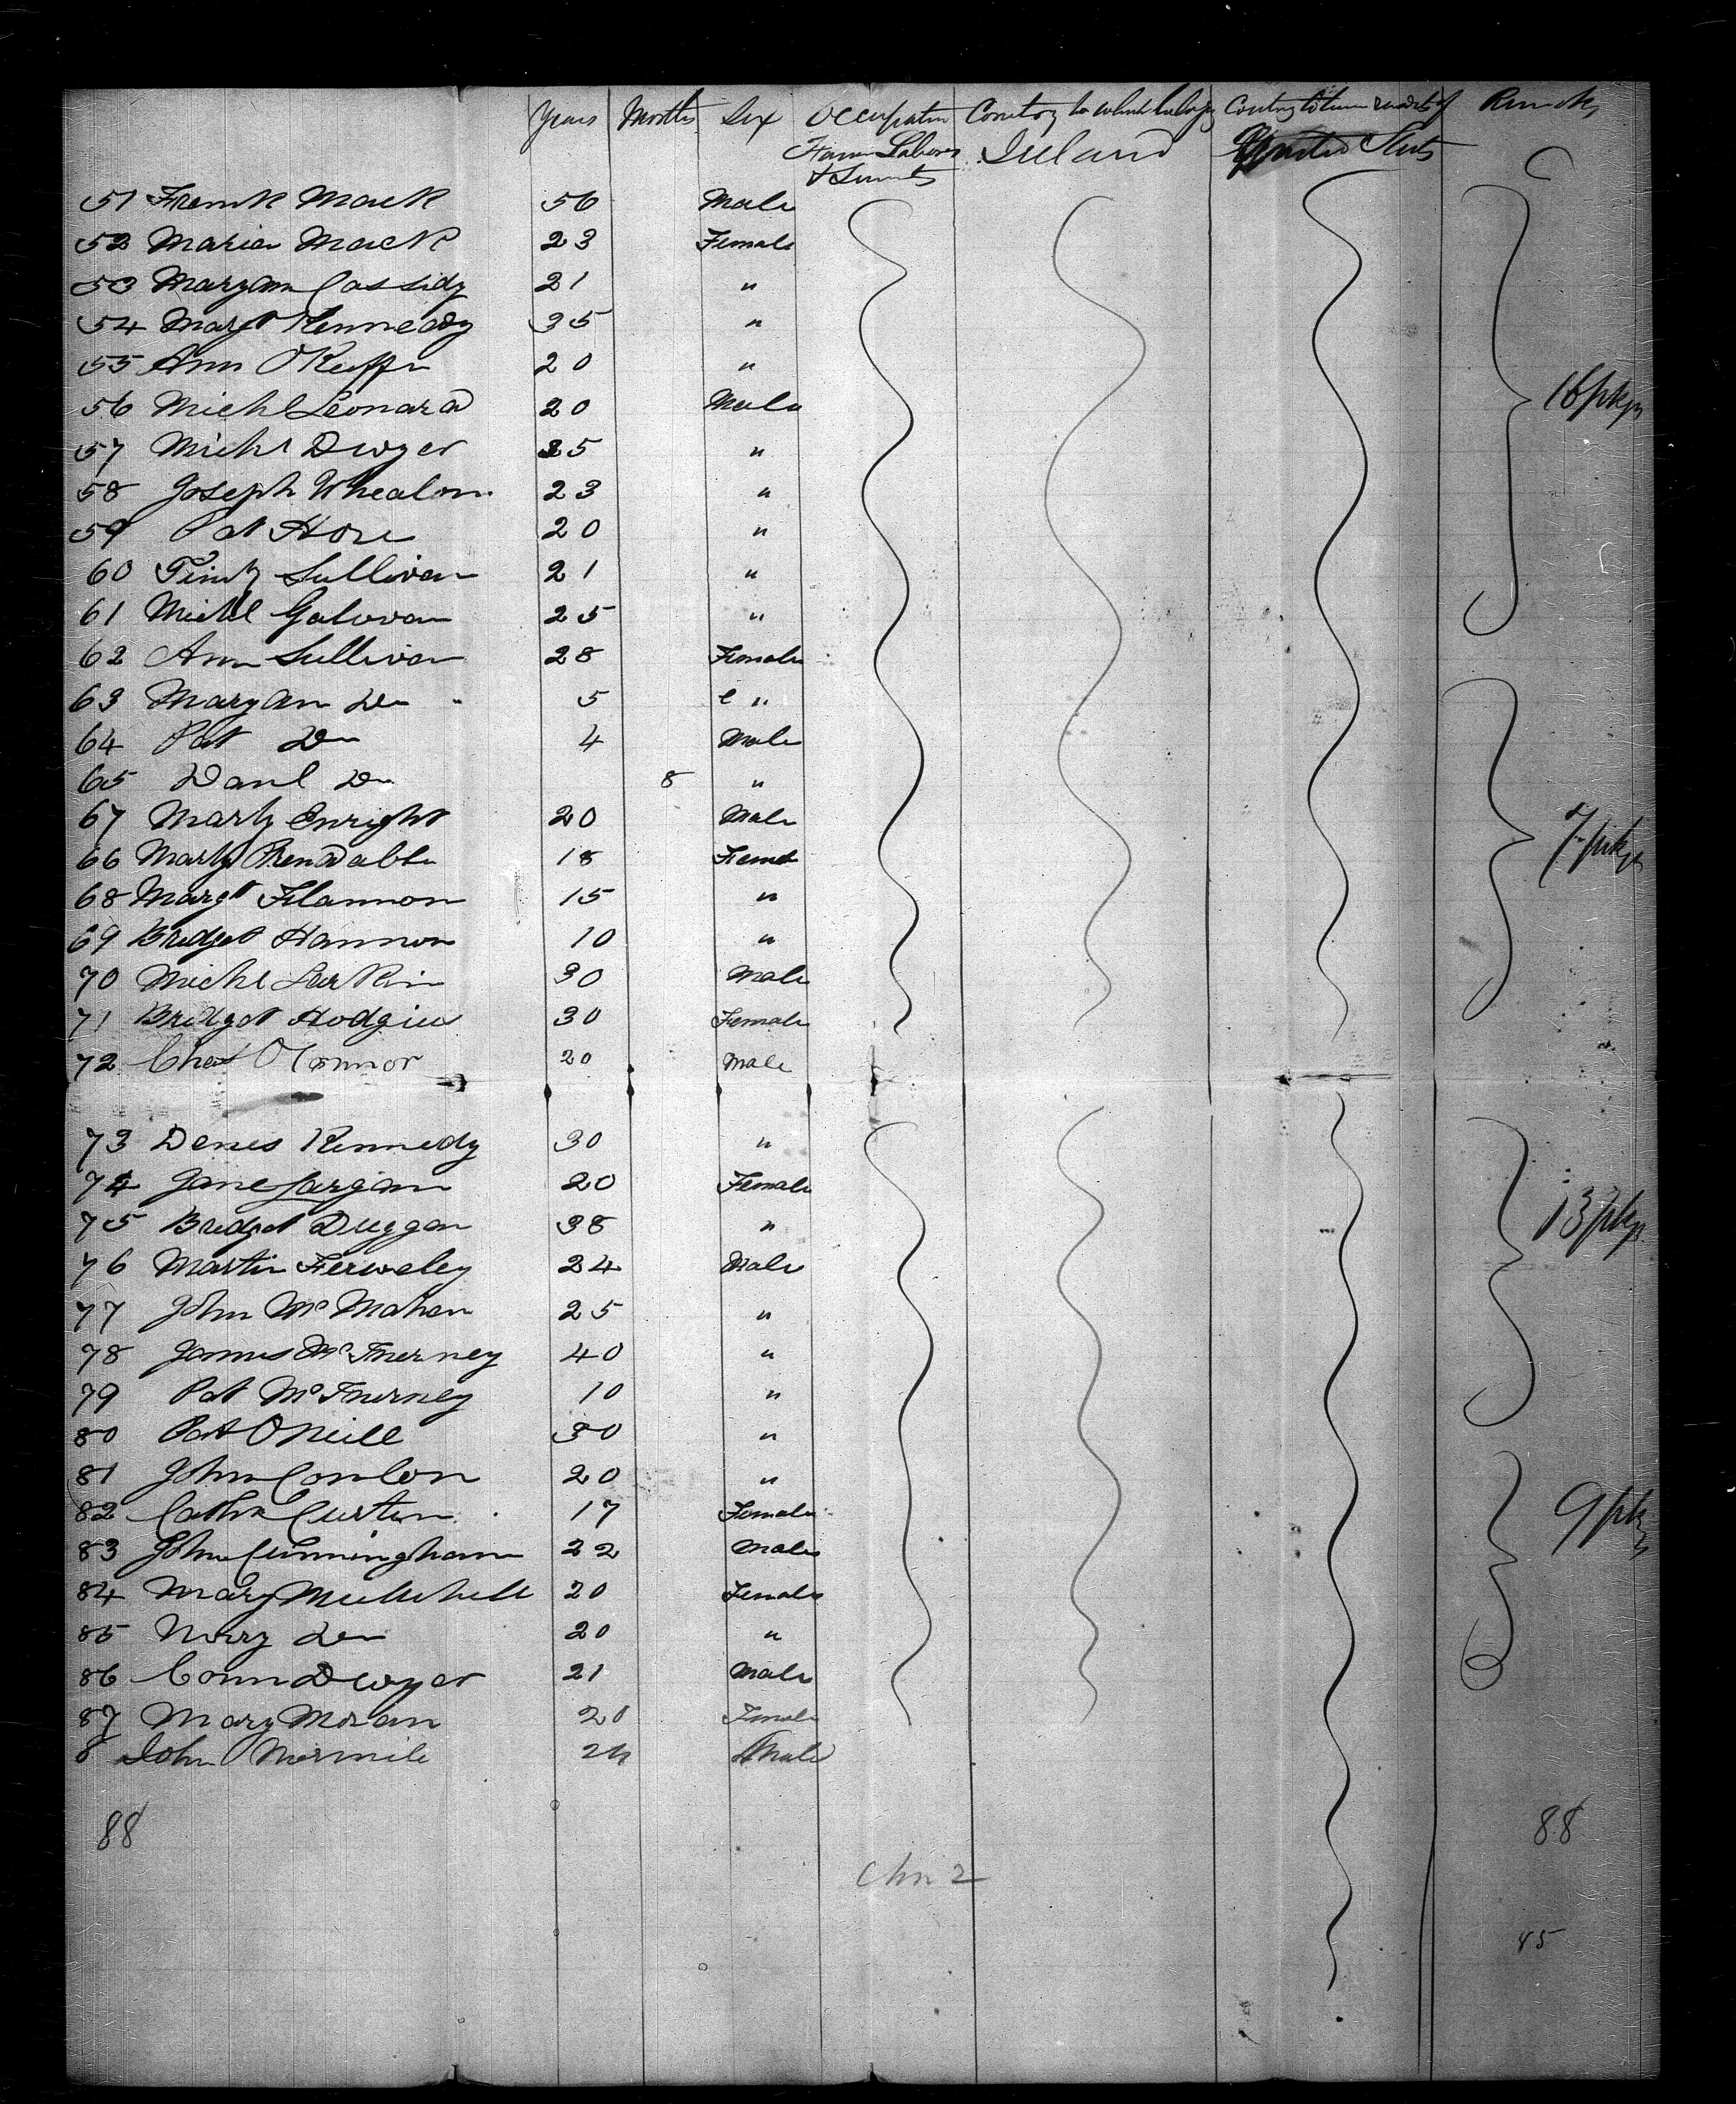 Years Months Sex Occupation Country to which belong Country to Remarks
Farm Labors Ireland United Stats
& Servnts
51 Frank Mack 56 Male
52 Maria Mack 23 Female
53 Maryann Cassidy 21 "
54 Margt Kennedy 35 "
55 Ann OKeffe 20 "
56 Michl Leonard 20 Male 16 pkgs
57 Michl Dwyer 25 "
58 Joseph Whealon 23 "
59 Pat Hore 20 "
60 Timthy Sullivan 21 "
61 Michl Galovan 25 "
62 Ann Sullivan 28 Female
63 Maryann Do 5 "
64 Pat Do 4 Male
65 Danl Do 8 "
67 Marty Enright 20 Male 7 pkgs
66 18 Femal
68 Margt Flannon 15 "
69 Bridget Hannon 10 "
70 Michl Larkin 30 Male
71 Bridget Hodgins 30 Female
72 OConnor 20 Male
73 Denis Kennedy 30 "
74 Jane Largan 20 Female
75 Bridget Duggan 38 " 13 pkgs
76 Martin 24 Male
77 John McMahon 25 "
78 James McInerney 40 "
79 Pat McInerney 10 "
80 Pat ONeill 30 "
81 John Conlon 20 "
82 Cathn Curtin 17 Female 9 pkgs
83 John Cunningham 22 Male
84 Mary 20 Female
85 Mary Do 20 "
86 Conn Dwyer 21 Male
87 Mary Moran 20 Female
8 John Normile 24 Male
88 88
2
45